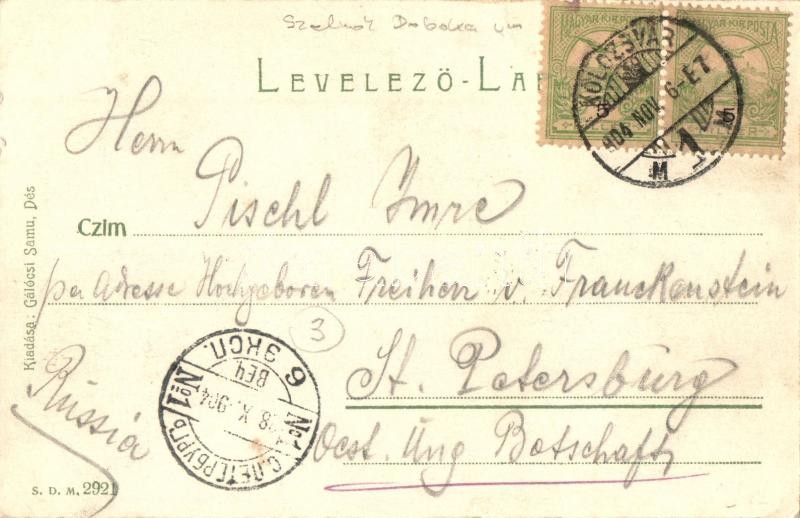 Szolnok Doboka vm
LEVELEZŐ-LA
MAGYAR·KIR·POSTA MAGYAR·KIR·POSTA
KOLOZSVÁR
904 NOV. 6-E7
M
Herrn
Czim Pischl Imre
per Adresse Hochgeboren Freiherr v. Franckenstein
3
St. Petersburg
Russia
Oest. Ung Botschaft
Kiadása: Gálócsi Samu, Dés
С.ПЕТЕРБУРГЪ
№1 №1
904
6 ЭКСП.
ВЕЧ
S. D. M. 2921